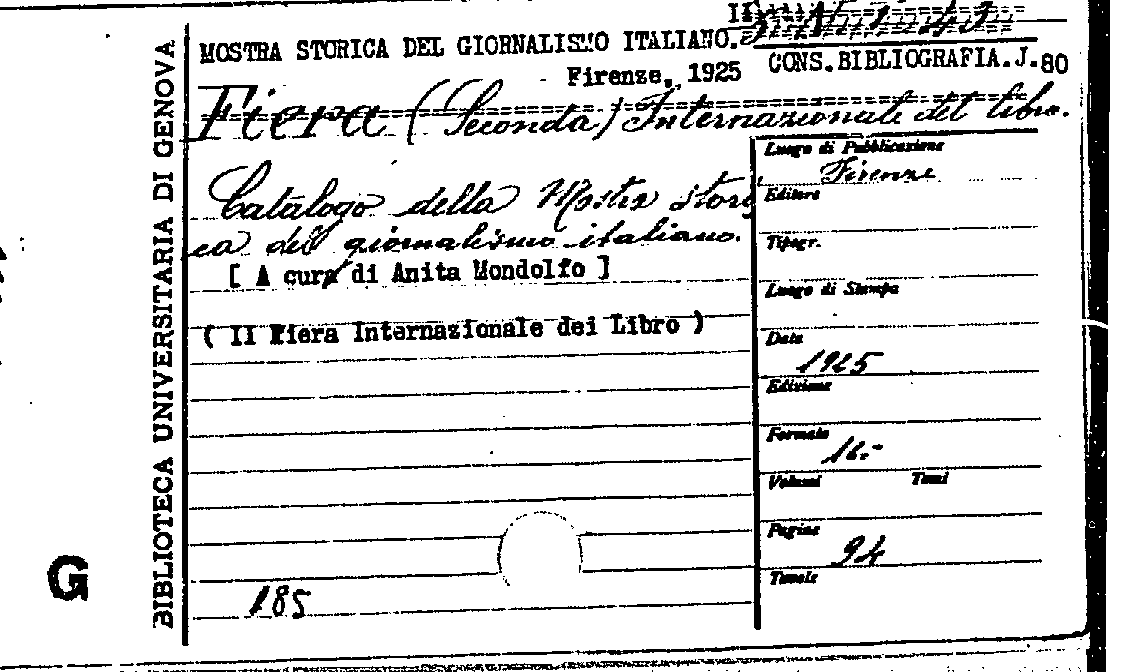 MOSTRA STORICA DEL GIORNALISMO ITALIANO.
Firenze, 1925
CONS.BIBLIOGRAFIA.J.80
Fiera (Seconda) Internazionale del libro.
Catalogo della Mostra stori
ca del giornalismo italiano.
[ A cura di Anita Mondolfo ]
( II Fiera Internazionale dei Libro )
185
BIBLIOTECA UNIVERSITARIA DI GENOVA
G
Luogo di Pubblicazione
Firenze
Editore
Tipogr.
Luogo di Stampa
Data
1925
Edizione
Formato
16.-
Volumi Tomi
Pagine
94
Tavole